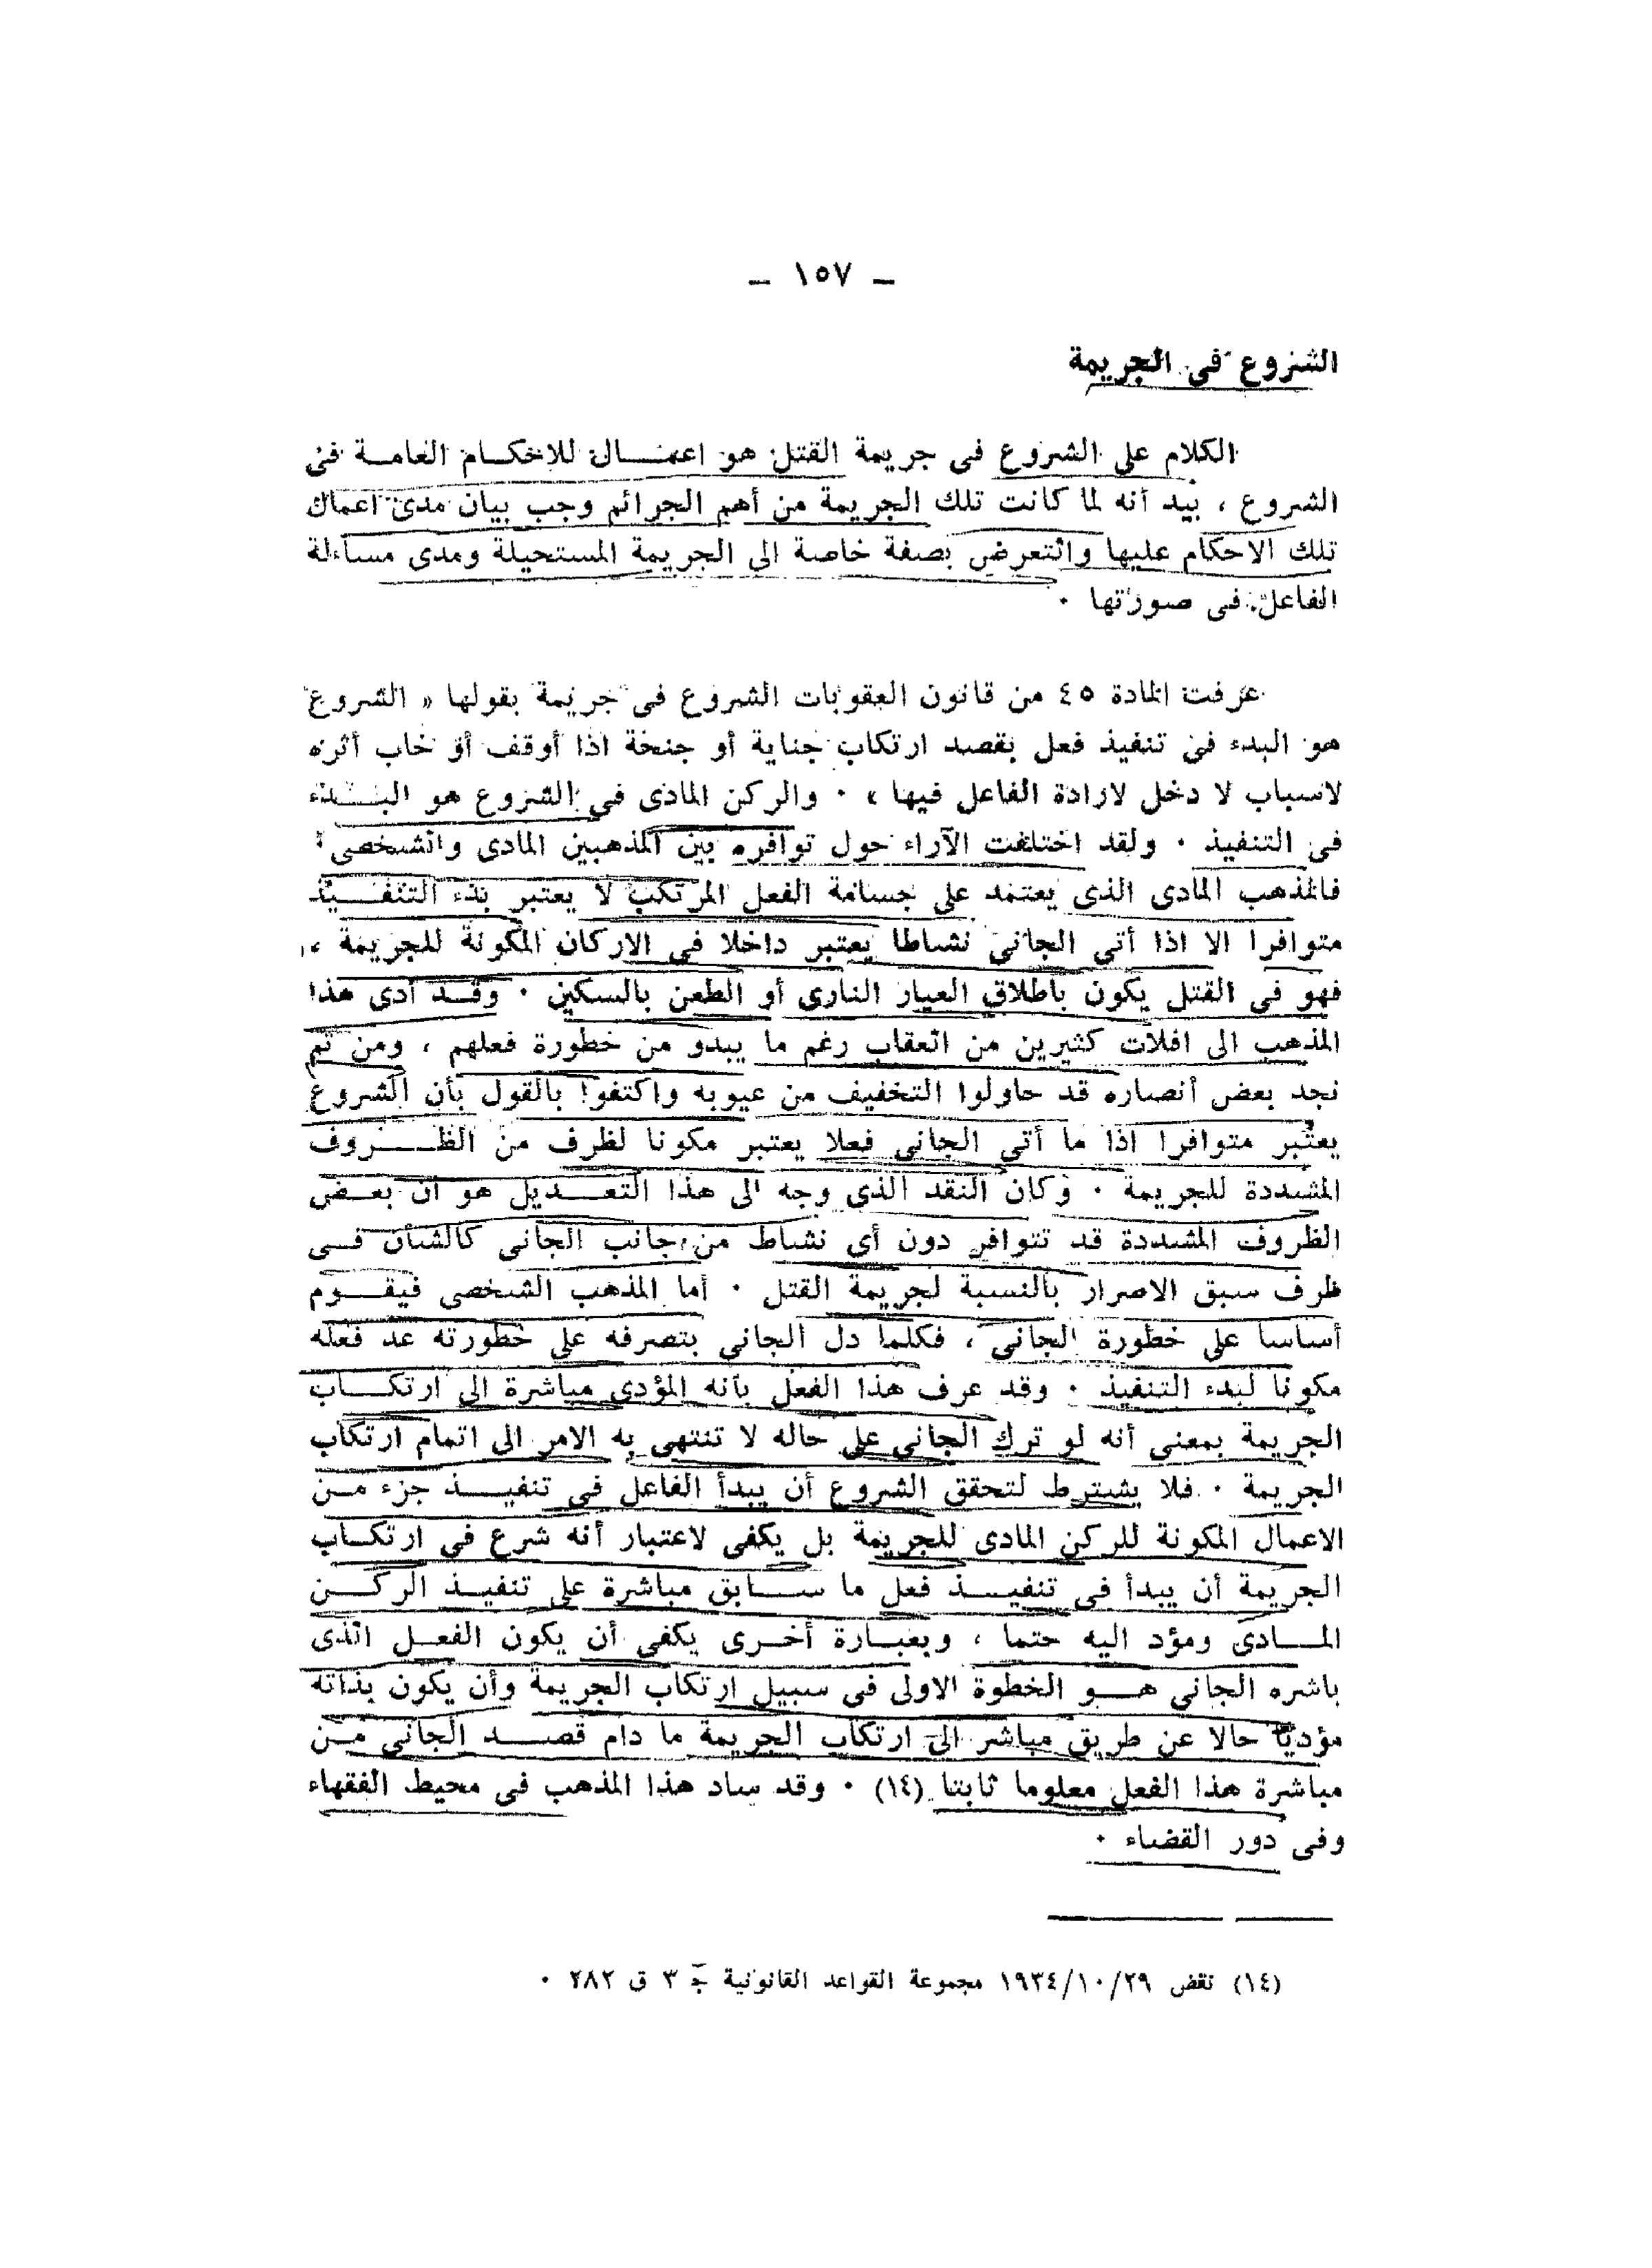 – ١٥٧ –
الشروع في الجريمة
الكلام على الشروع في جريمة القتل هو اعمال للاحكام العامة في
الشروع ، بيد أنه لما كانت تلك الجريمة من أهم الجرائم وجب بيان مدى اعمال
تلك الاحكام عليها والتعرض بصفة خاصة الى الجريمة المستحيلة ومدى مساءلة
الفاعل في صورتها .
عرفت المادة ٤٥ من قانون العقوبات الشروع في جريمة بقولها « الشروع
هو البدء في تنفيذ فعل بقصد ارتكاب جناية أو جنحة اذا أوقف أو خاب أثره
لاسباب لا دخل لارادة الفاعل فيها » . والركن المادى في الشروع هو البدء
في التنفيذ . ولقد اختلفت الآراء حول توافره بين المذهبين المادى والشخصى :
فالمذهب المادى الذى يعتمد على جسامة الفعل المرتكب لا يعتبر بدء التنفيذ
متوافرا الا اذا أتى الجانى نشاطا يعتبر داخلا في الاركان المكونة للجريمة ،
فهو في القتل يكون باطلاق العيار النارى أو الطعن بالسكين . وقد أدى هذا
المذهب الى افلات كثيرين من العقاب رغم ما يبدو من خطورة فعلهم ، ومن ثم
نجد بعض أنصاره قد حاولوا التخفيف من عيوبه واكتفوا بالقول بأن الشروع
يعتبر متوافرا اذا ما أتى الجانى فعلا يعتبر مكونا لظرف من الظروف
المشددة للجريمة . وكان النقد الذى وجه الى هذا التعديل هو أن بعض
الظروف المشددة قد تتوافر دون أى نشاط من جانب الجانى كالشأن في
ظرف سبق الاصرار بالنسبة لجريمة القتل . أما المذهب الشخصى فيقوم
أساسا على خطورة الجانى ، فكلما دل الجانى بتصرفه على خطورته عد فعله
مكونا لبدء التنفيذ . وقد عرف هذا الفعل بأنه المؤدى مباشرة الى ارتكاب
الجريمة بمعنى أنه لو ترك الجانى على حاله لا تنتهى به الامر الى اتمام ارتكاب
الجريمة . فلا يشترط لتحقق الشروع أن يبدأ الفاعل في تنفيذ جزء من
الاعمال المكونة للركن المادى للجريمة بل يكفى لاعتبار أنه شرع في ارتكاب
الجريمة أن يبدأ في تنفيذ فعل ما سابق مباشرة على تنفيذ الركن
المادى ومؤد اليه حتما ، وبعبارة أخرى يكفى أن يكون الفعل الذى
باشره الجانى هو الخطوة الاولى في سبيل ارتكاب الجريمة وأن يكون بذاته
مؤديا حالا عن طريق مباشر الى ارتكاب الجريمة ما دام قصد الجانى من
مباشرة هذا الفعل معلوما ثابتا (١٤) . وقد ساد هذا المذهب في محيط الفقهاء
وفى دور القضاء .
(١٤) نقض ١٩٣٤/١٠/٢٩ مجموعة القواعد القانونية جـ ٣ ق ٢٨٢ .